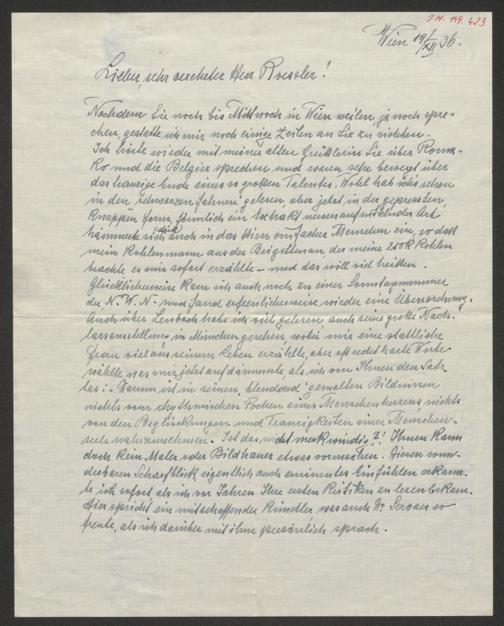 J.N. 149.423
Wien 19/XII 36.
Lieber, sehr verehrter Herr Roessler!
Nachdem Sie noch bis Mittwoch in Wien weilen, ja noch spre-
chen, gestatte ich mir noch einige Zeilen an Sie zu richten.
Ich hörte wieder mit meiner alten Sie über Roma-
ko und die Belgier sprechen und waren sehr bewegt über
das traurige Ende eines so großen Talentes. Wohl hab ich's schon
in den "schwarzen Fahnen" gelesen, aber jetzt in der gepressten,
knappen Form, förmlich ein Extrakt
hämmerte sich auch in das Hirn einfacher Menschen ein, so daß
mein Kohlenmann aus der der meine 250 K Kohlen
brachte es mir sofort erzählte – und das will viel heißen.
Glücklicherweise kam ich auch noch zu einer Sonntagnummer
der N.W.N. und fand erfreulicherweise wieder eine Überraschung.
Auch über Lenbach habe ich viel gelesen, auch seine große Nach-
lassausstellung in München gesehen wobei mir eine stattliche
Frau viel aus seinem Leben erzählte, aber oft recht harte Worte
wählte was mir jetzt aufdämmerte, als ich von Ihnen den Satz
las: Warum ist in seinen, blendend gemalten Bildnissen
nichts vom rhythmischen Pochen eines Menschenherzens, nichts
von den Beglückungen und Traurigkeiten einer Menschen-
seele wahrzunehmen. – Ist das nicht merkwürdig?! Ihnen kann
doch kein Maler oder Bildhauer etwas vormachen. Diesen wun-
derbaren Scharfblick eigentlich auch eminentes Einfühlen erkann-
te ich sofort als ich vor Jahren Ihre ersten Kritiken zu lesen bekam.
Hier spricht ein mitschaffender Künstler was auch Dr. er
freute, als ich darüber mit ihm persönlich sprach.